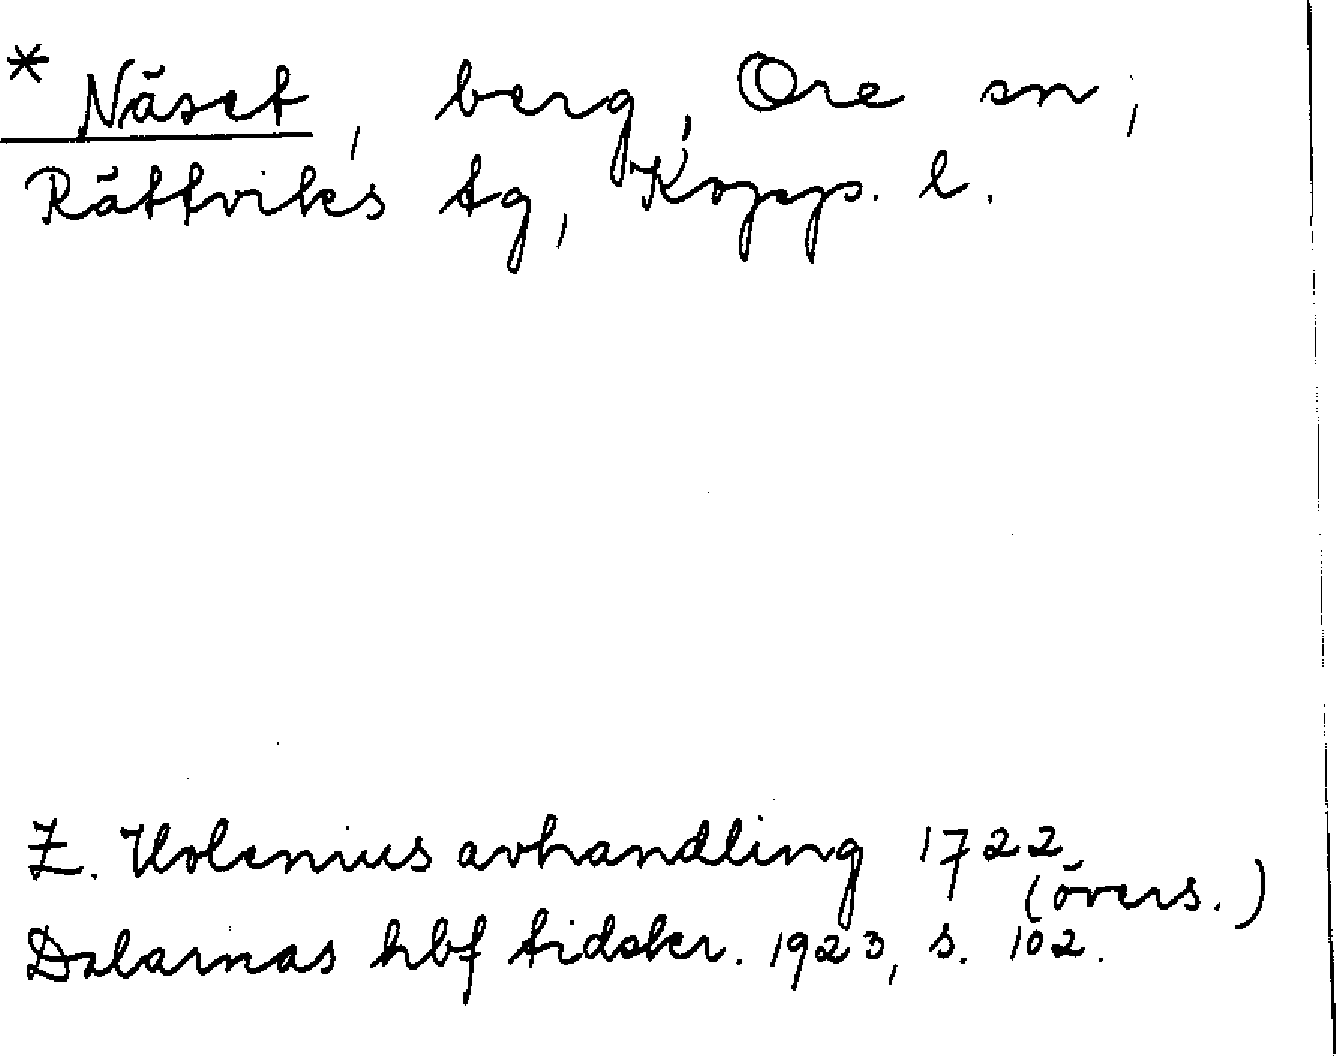 * Näset, berg, Ore sn,
Rättviks tg, Kopp. l.
Z. Holenius avhandling 1722
(övers.)
Dalarnas hbf tidskr. 1923, s. 102.